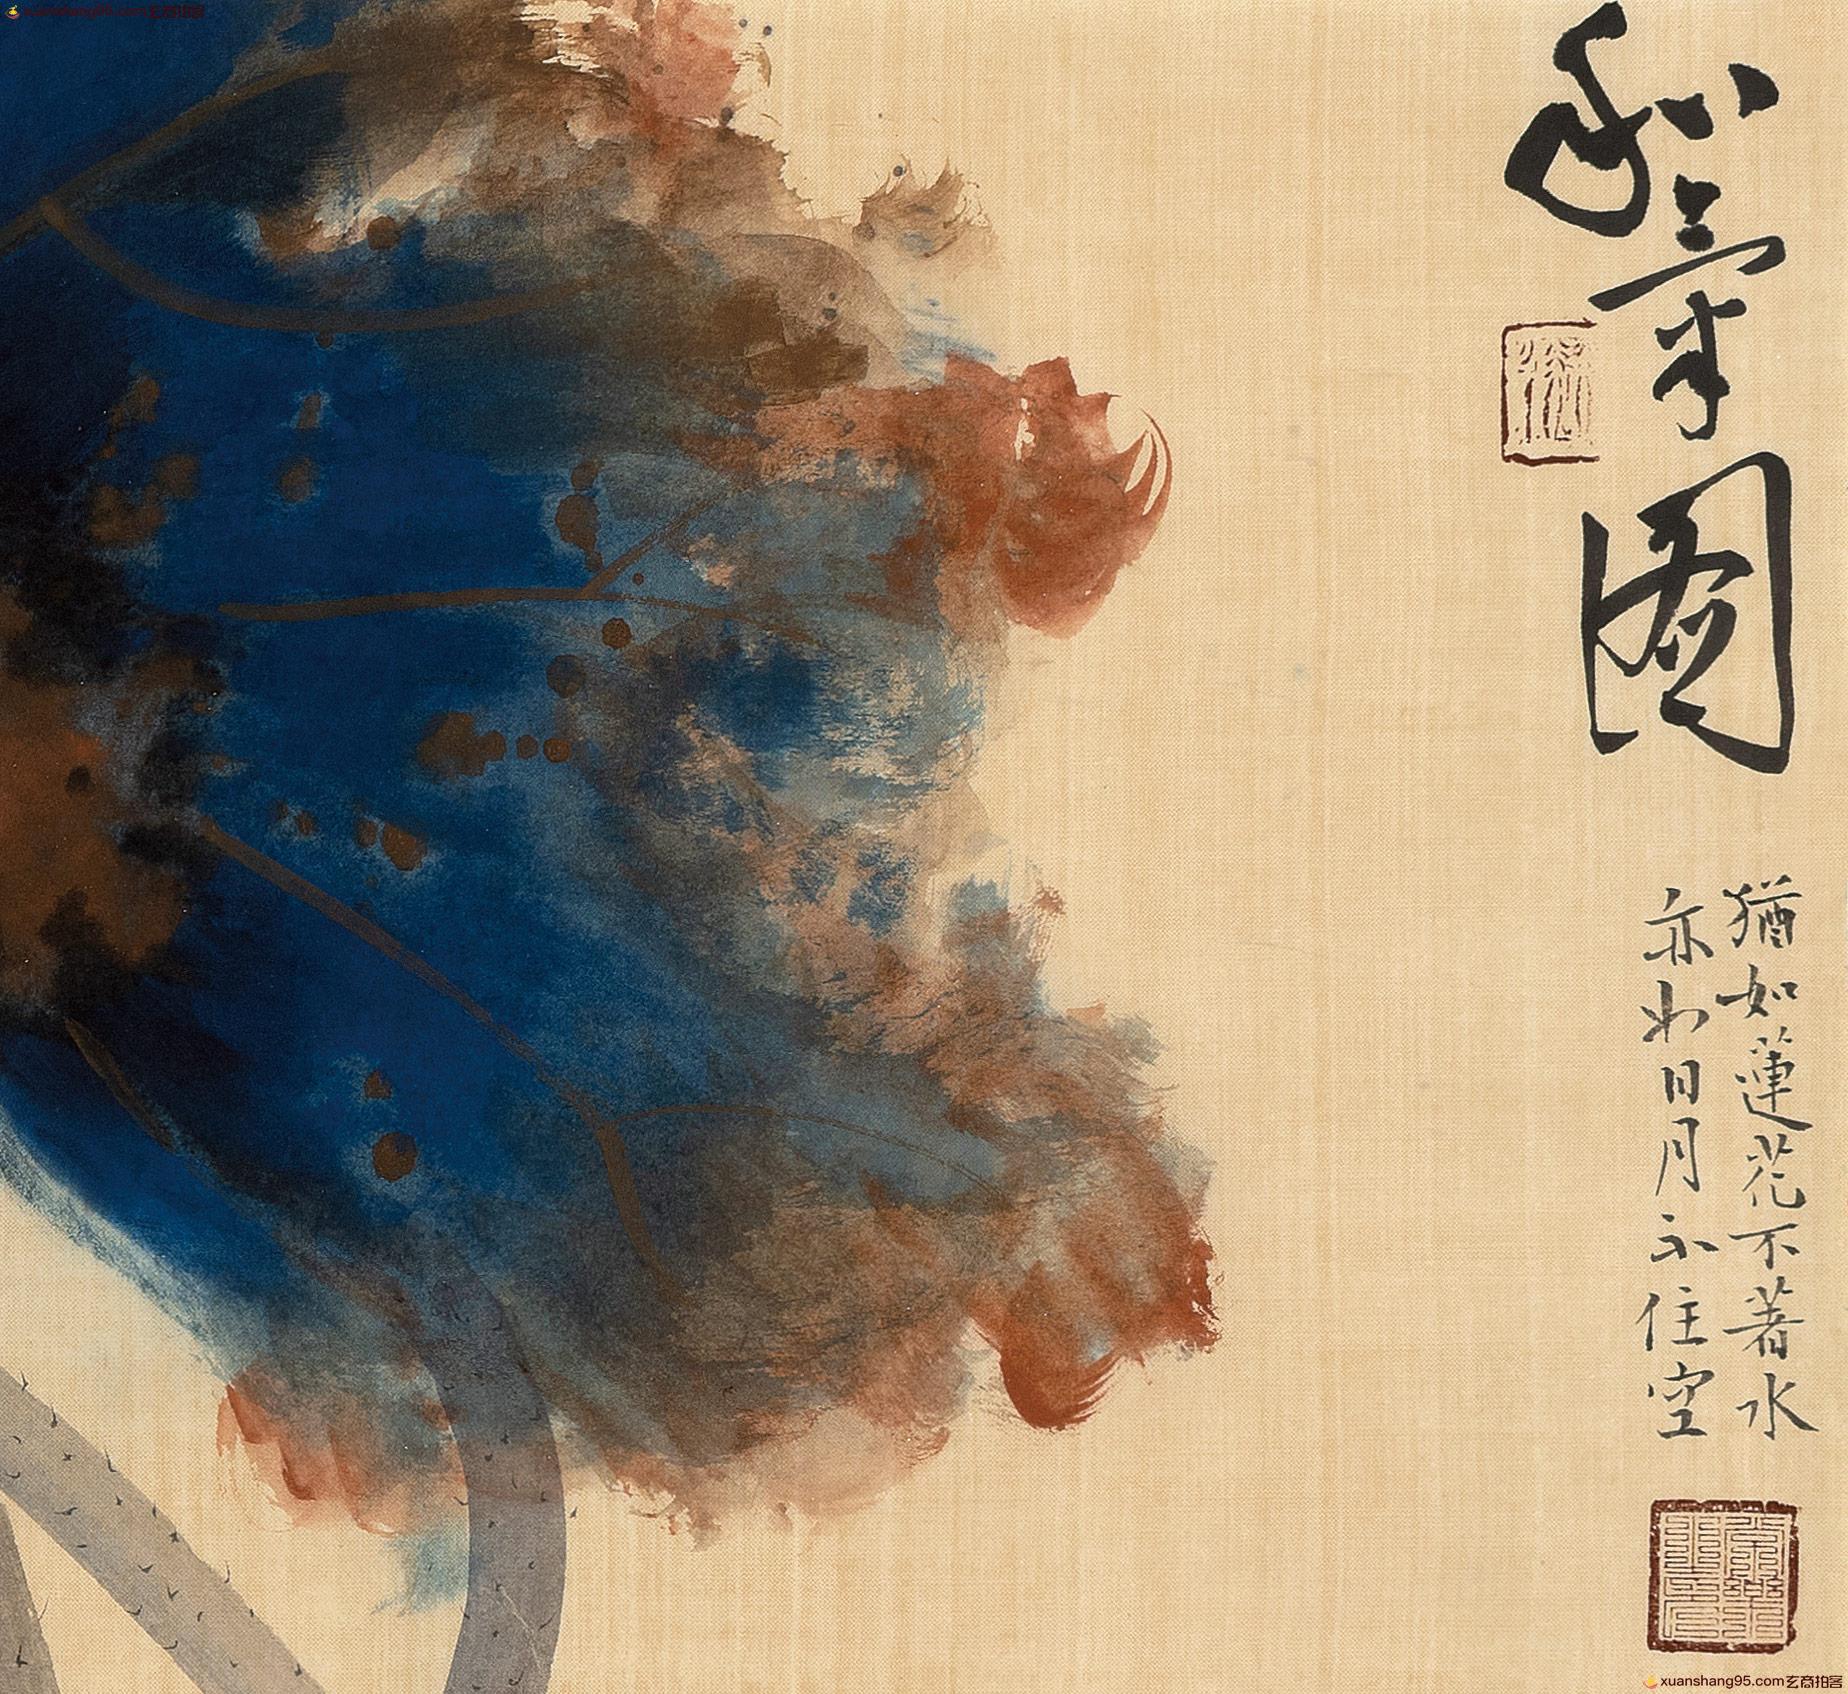 xuanshang95.com玄商拍客
圖
猶如蓮花不著水
亦如日月不住空
xuanshang95.com玄商拍客